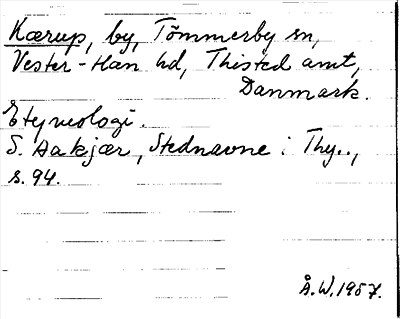 Kærup, by, Tömmerby sn,
Vester-Han hd, Thisted amt,
Danmark.
Etymologi.
S. Aakjær, Stednavne i Thy..,
s. 94.
Å.W. 1957.